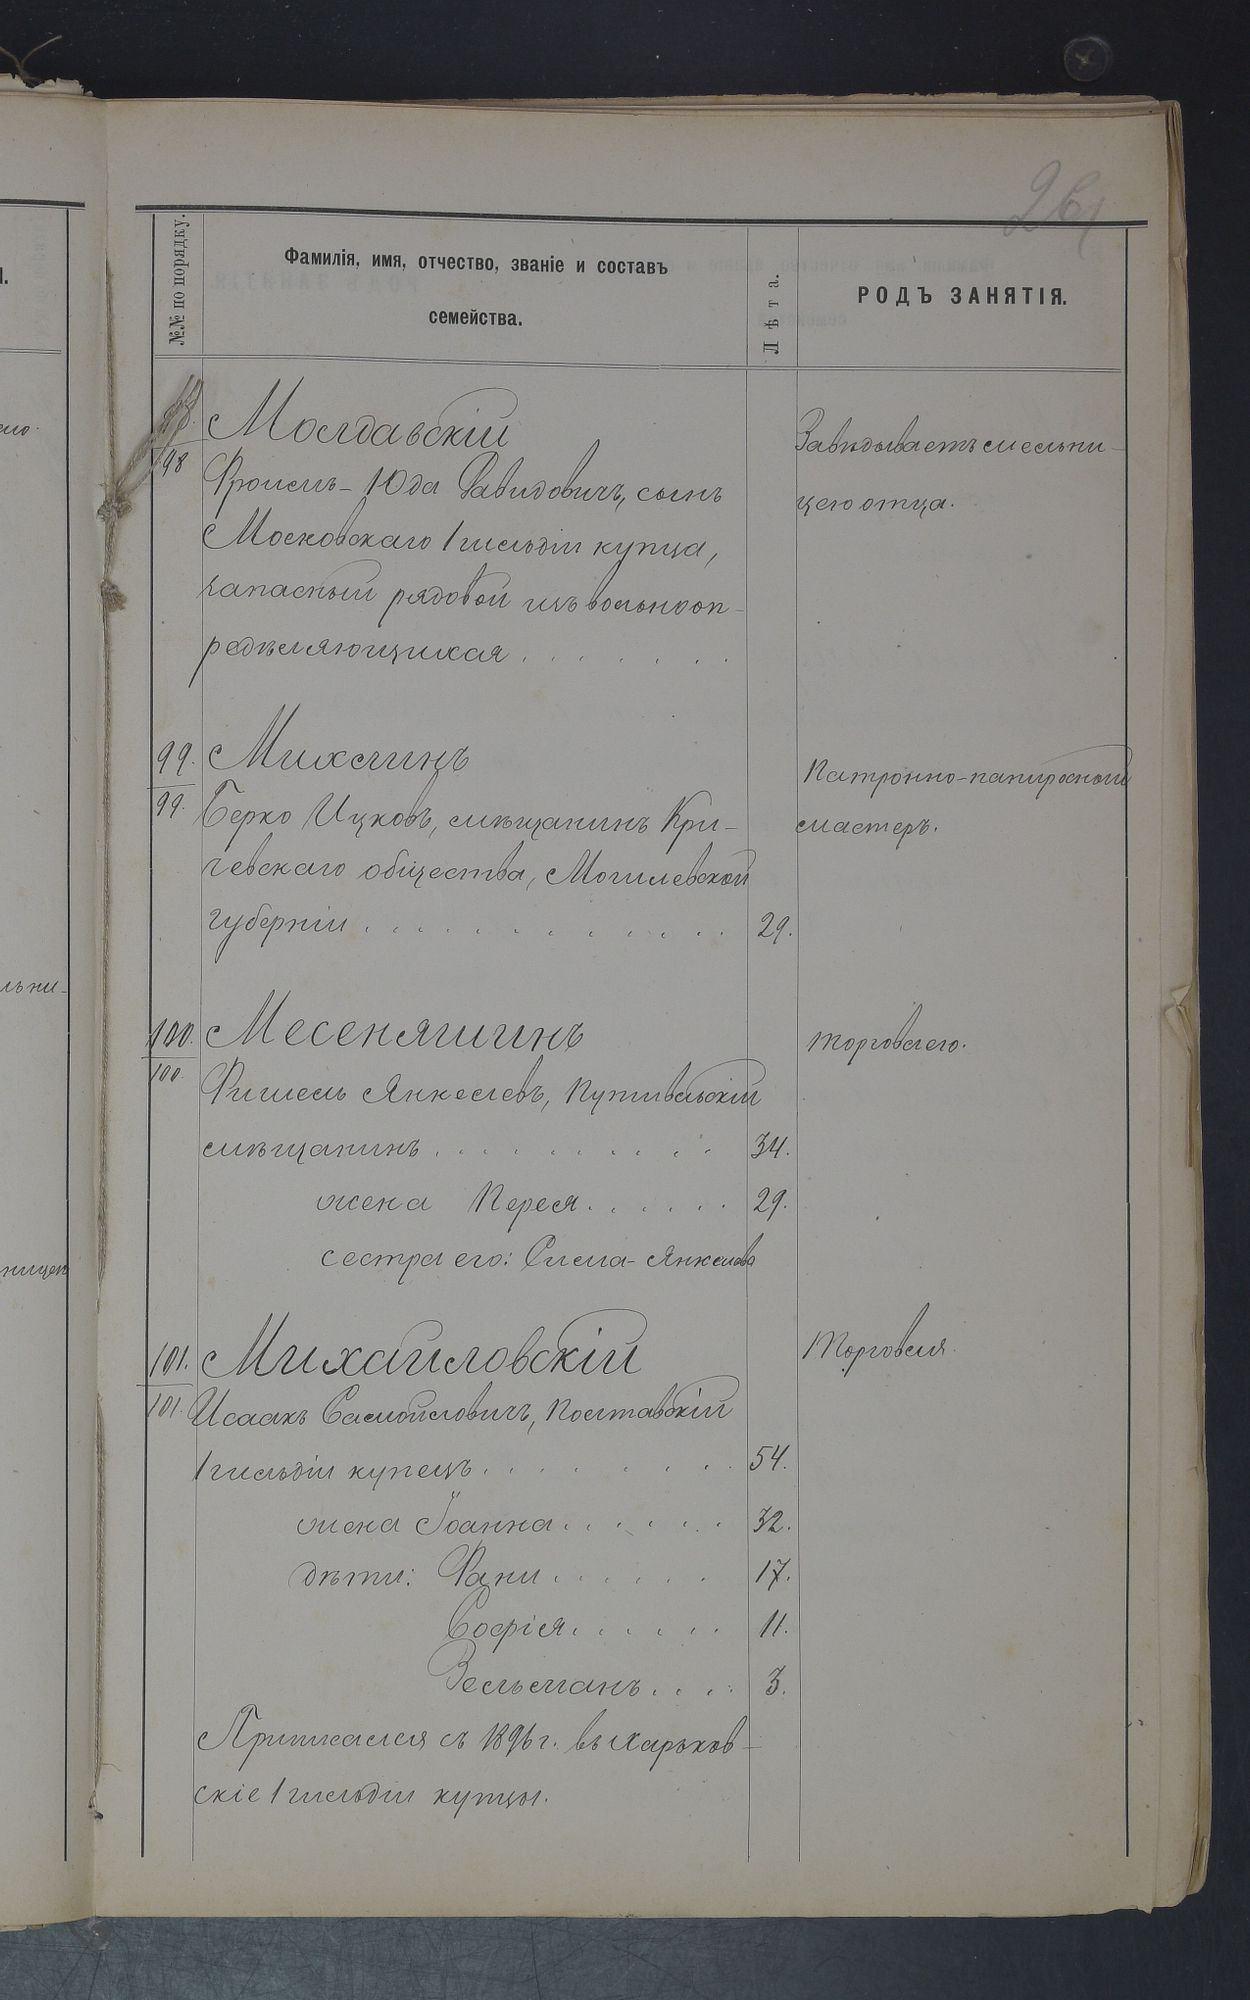 261
№№ по порядку.
Фамилія, имя, отчество, званіе и составъ
семейства.
Лѣта.
РОДЪ ЗАНЯТІЯ.
98 Молдавскій
Завѣдываетъ мельни-
98
Фроимъ-Юда Давидовичъ, сынъ
цею отца.
Московскаго 1 гильдіи купца,
запасный рядовой изъ вольнооп-
редѣляющихся . . . . . . .
99. Михлинъ
Патронно-папиросный
99.
Берко Ицковъ, мѣщанинъ Кри-
мастеръ.
чевскаго общества, Могилевской
губерніи . . . . . . . . . . . . . 29.
100. Месеняшинъ
Торговлею.
100.
Фишель Янкелевъ, Путивльскій
мѣщанинъ . . . . . . . . . . 34.
жена Переля . . . . . . 29.
сестра его: Сима-Янкелева
101. Михайловскій
Торговля.
101.
Исаакъ Самойловичъ, Полтавскій
1 гильдіи купецъ . . . . . . . . . 54.
жена Іоанна . . . . . . 32.
дѣти: Фани . . . . . . 17.
Софія . . . . . . 11.
Зельманъ . . . . 3.
Приписался съ 1896 г. въ Харьков-
скіе 1 гильдіи купцы.